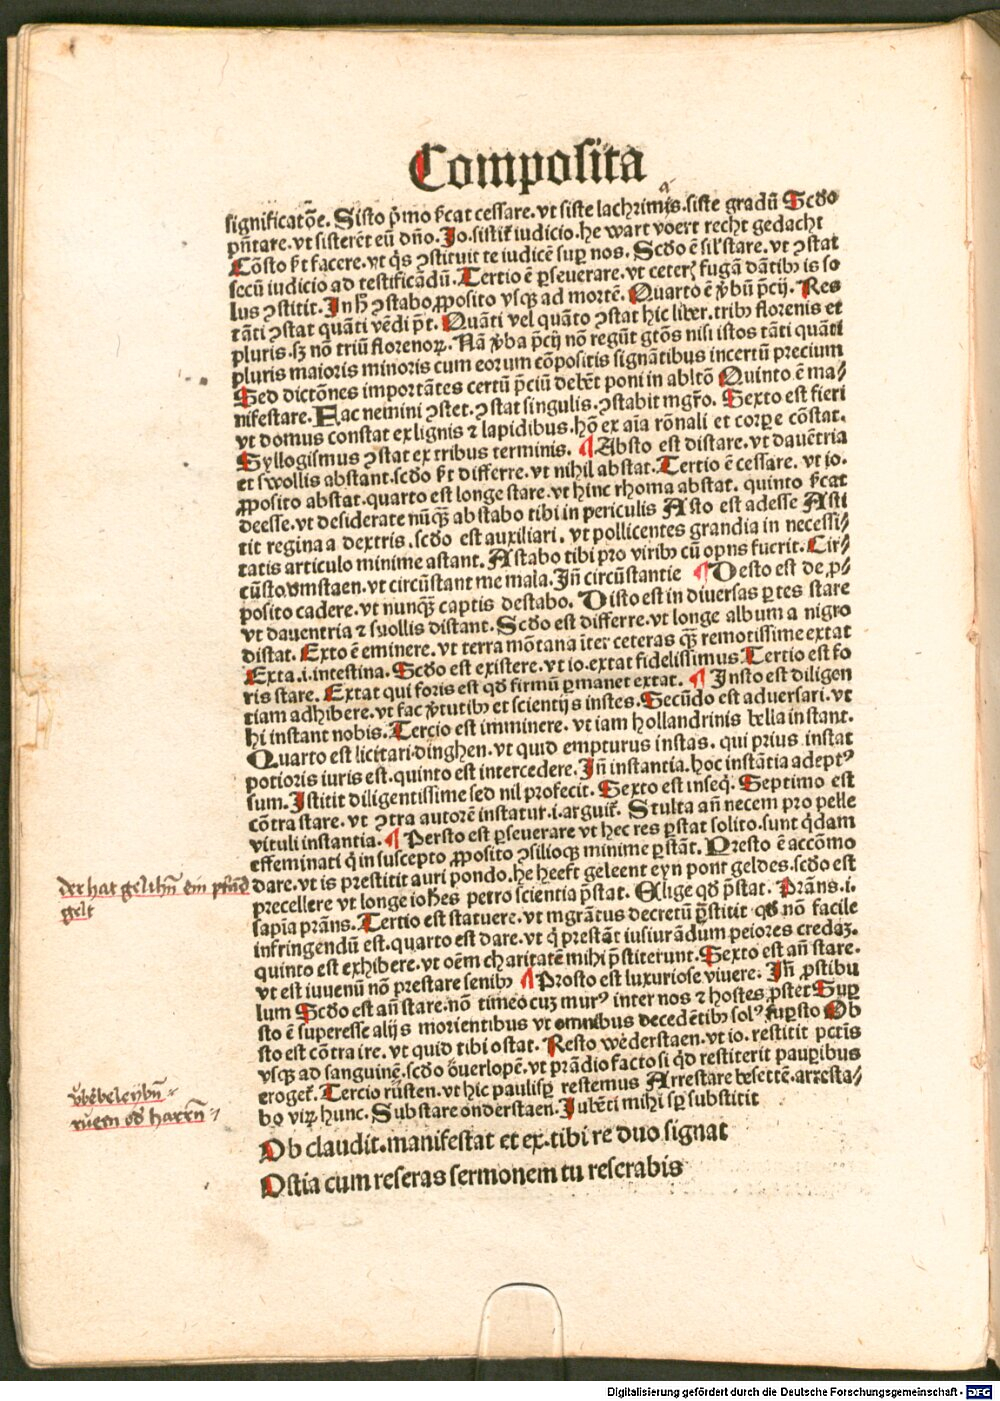 Composita
significatõe. Sisto p̃mo s̃cat cessare. vt siste lachrimas. siste gradũ Scd̃o
pñtare. vt sisterẽt eũ dño. Io. sistit̃ iudicio. he wart voert recht gedacht
Cõsto s̃t facere. vt q̃s ꝯstituit te iudicẽ suꝑ nos. Scd̃o ẽ sil̃ stare. vt ꝯstat
secũ iudicio ad testificãdũ. Tertio ẽ ꝑseuerare. vt ceterꝭ fugã dãtibꝫ is so
lus ꝯstitit. In h̃ ꝯstabo ꝓposito vsqꝫ ad mortẽ. Quarto ẽ v̾bũ p̃cij. Res
tãti ꝯstat quãti vẽdi p̃t. Quãti vel quãto ꝯstat hic liber. tribꝫ florenis et
pluris. sꝫ nõ triũ florenoꝝ. Nã v̾ba p̃cij nõ regũt gtõs nisi istos tãti quãti
pluris maioris minoris cum eorum cõpositis signãtibus incertũ precium
Sed dictõnes importãtes certũ p̃ciũ debẽt poni in abltõ Quinto ẽ ma⸗
nifestare. Hac nemini ꝯstet. ꝯstat singulis. ꝯstabit mgr̃o. Sexto est fieri
vt domus constat ex lignis ⁊ lapidibus. hõ ex aĩa rõnali et corꝑe cõstat.
Syllogismus ꝯstat ex tribus terminis. ¶ Absto est distare. vt dauẽtria
et swollis abstant. scd̃o s̃t differre. vt nihil abstat. Tertio ẽ cessare. vt io.
ꝓposito abstat. quarto est longe stare. vt hinc rhoma abstat. quinto s̃cat
deesse. vt desiderate nũqꝫ̃ abstabo tibi in periculis Asto est adesse Asti
tit regina a dextris. scd̃o est auxiliari. vt pollicentes grandia in necessi⸗
tatis articulo minime astant. Astabo tibi pro viribꝫ cũ opns fuerit. Cir⸗
cũsto. vmstaen. vt circũstant me mala. Iñ circũstantie ¶ Desto est de ꝓ⸗
posito cadere. vt nunqꝫ̃ captis destabo. Disto est in diuersas ꝑtes stare
vt dauentria ⁊ suollis distant. Scd̃o est differre. vt longe album a nigro
distat. Exto ẽ eminere. vt terra mõtana ĩter ceteras qꝫ̃ remotissime extat
Exta. i. intestina. Scd̃o est existere. vt io. extat fidelissimus Tertio est fo
ris stare. Extat qui foris est qd̃ firmũ ꝑmanet extat. ¶ Insto est diligen
tiam adhibere. vt fac v̾tutibꝫ et scientijs instes. Secũdo est aduersari. vt
hi instant nobis. Tercio est imminere. vt iam hollandrinis bella instant.
Quarto est licitari. dinghen. vt quid empturus instas. qui prius instat
potioris iuris est. quinto est intercedere. Iñ instantia. hoc instãtia adeptꝰ
sum. Istitit diligentissime sed nil profecit. Sexto est inseq̃. Septimo est
cõtra stare. vt ꝯtra autorẽ instatur. i. arguit̃. Stulta añ necem pro pelle
vituli instantia. ¶ Persto est ꝑseuerare vt hec res ꝑstat solito. sunt q̃dam
effeminati q̃ in suscepto ꝓposito ꝯsilioqꝫ minime ꝑstãt. Presto ẽ accõmo
dare. vt is prestitit auri pondo. he heeft geleent eyn pont geldes. scd̃o est
precellere vt longe ioh̃es petro scientia p̃stat. Elige qd̃ p̃stat. Prãns. i.
sapĩa prãns. Tertio est statuere. vt mgrãtus decretũ p̃stitit qd̃ nõ facile
infringendũ est. quarto est dare. vt q̃ prestãt iusiurãdum peiores credaꝫ.
quinto est exhibere. vt oẽm charitatẽ mihi p̃stiterunt. Sexto est añ stare.
vt est iuuenũ nõ prestare senibꝫ ¶ Prosto est luxuriose viuere. Iñ ꝓstibu
lum Scd̃o est añ stare. nõ timeo cuꝫ murꝰ inter nos ⁊ hostes ꝓstet Suꝑ
sto ẽ superesse alijs morientibus vt omnibus decedẽtibꝫ solꝰ suꝑsto Ob
sto est cõtra ire. vt quid tibi ostat. Resto wederstaen. vt io. restitit pctĩs
vsqꝫ ad sanguinẽ. scd̃o ouerlopẽ. vt prãdio facto si q̃d restiterit pauꝑibus
eroget̃. Tercio rüsten. vt hic paulisꝑ restemus Arrestare besettẽ. arresta⸗
bo viꝝ hunc. Substare onderstaen. Iubẽti mihi sꝑ substitit
Ob claudit. manifestat et ex. tibi re duo signat
Ostia cum reseras sermonem tu reserabis
der hat gelihñ ein pfund
gelt
Digitalisierung gefördert durch die Deutsche Forschungsgemeinschaft - DFG